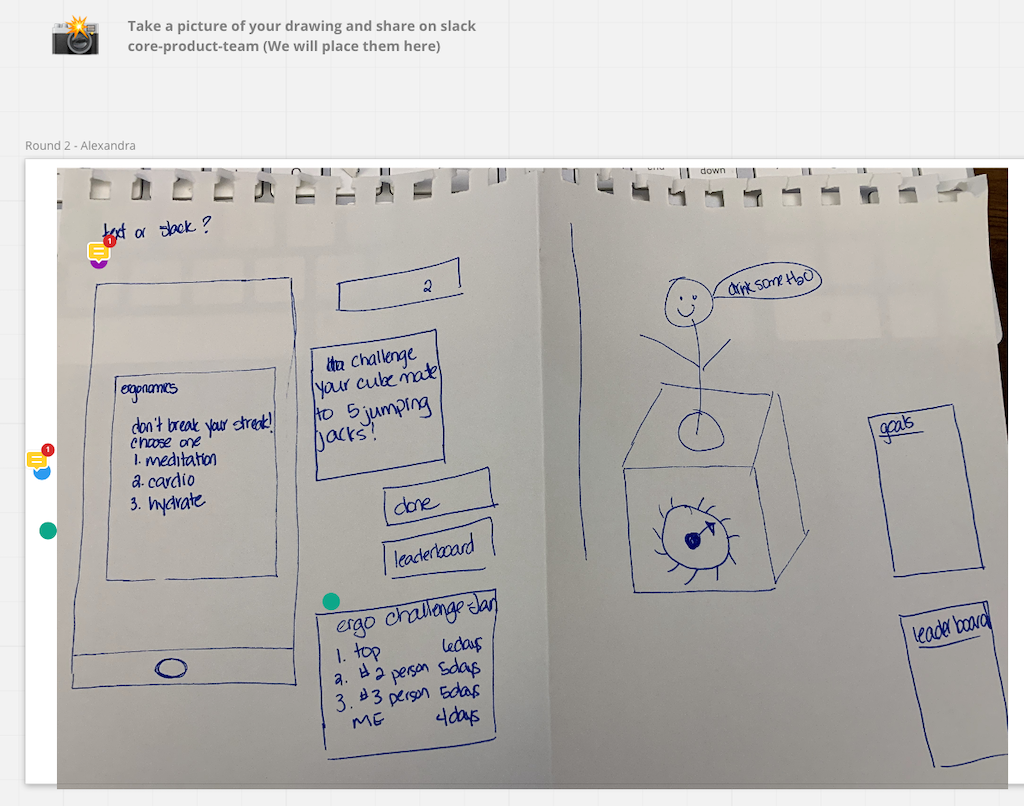 Take a picture of your drawing and share on slack
core-product-team (We will place them here)
Round 2 - Alexandra
down
text or slack?
1
2
ergonomics
don't break your streak!
choose one
1. meditation
2. cardio
3. hydrate
1
challenge
your cube mate
to 5 jumping
jacks!
done
leaderboard
ergo challenge-Jan
1. top 6days
2. #2 person 5days
3. #3 person 5days
ME 4days
drink some H2O
goals
leaderboard